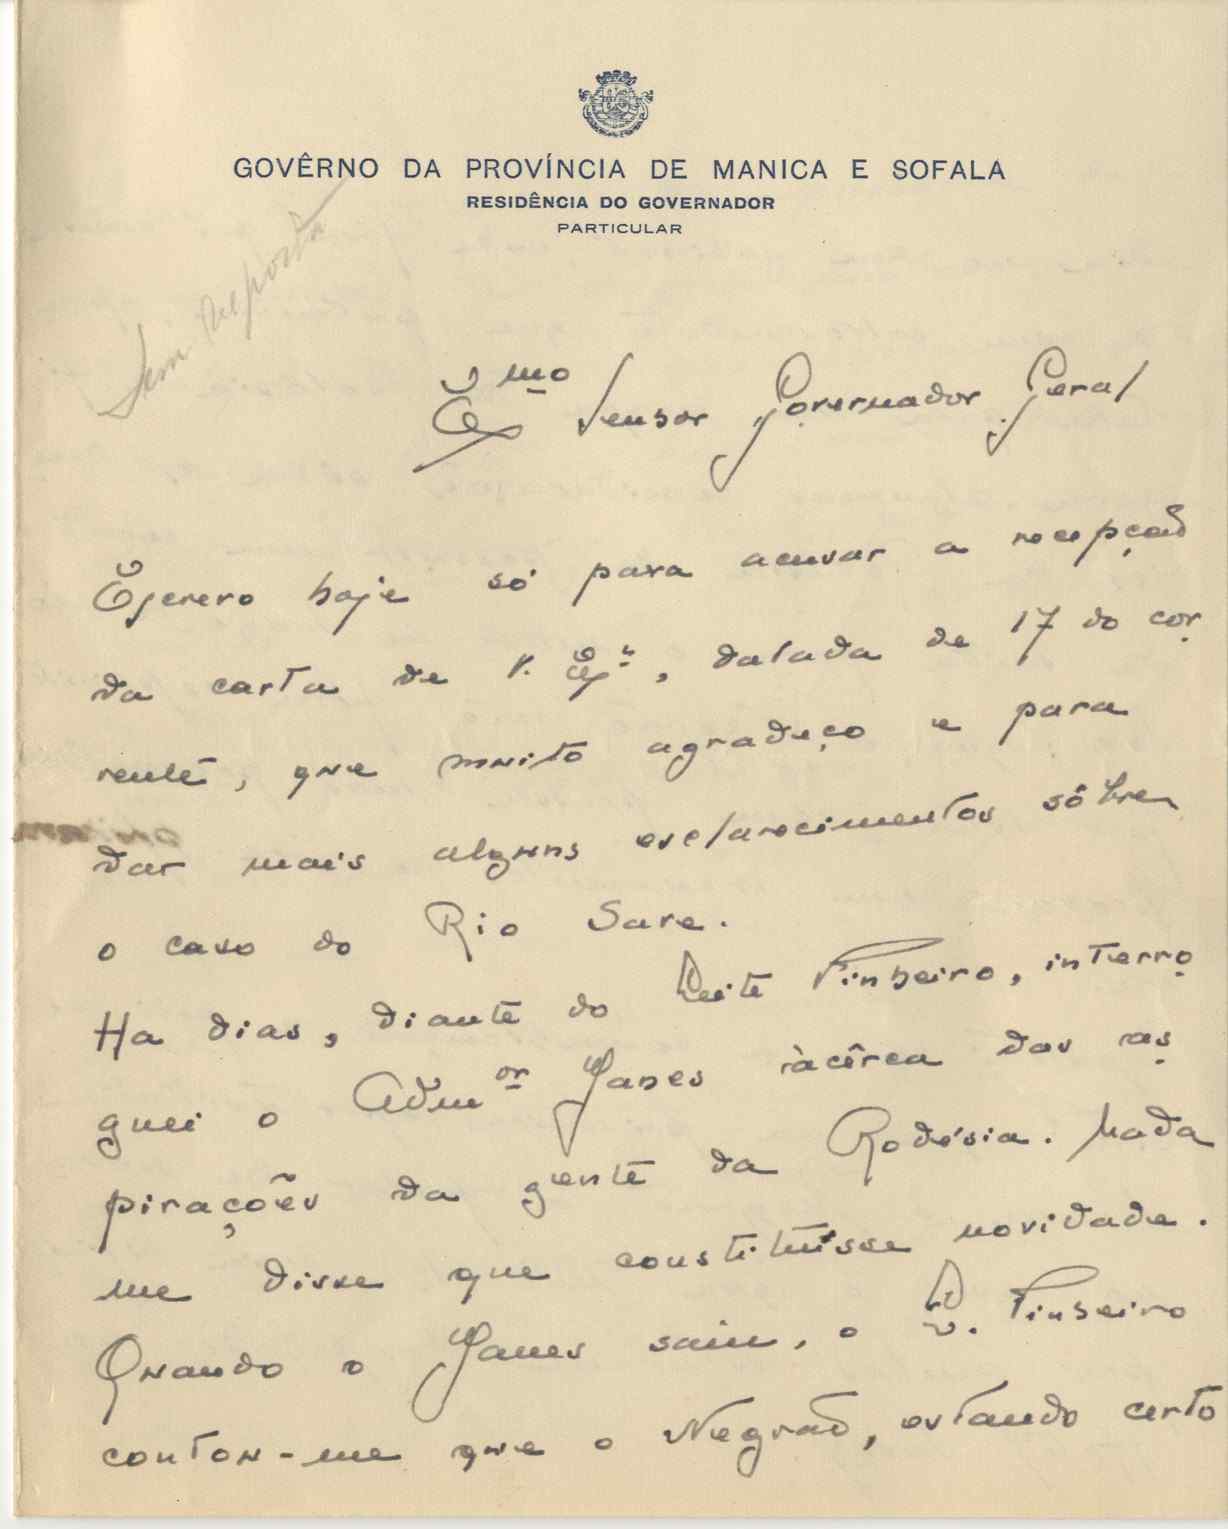 GOVÊRNO DA PROVÍNCIA DE MANICA E SOFALA
RESIDÊNCIA DO GOVERNADOR
PARTICULAR
Sem resposta
Exmo Senhor Governador Geral
Escrevo hoje só para acusar a recepção
da carta de V. Exª, datada de 17 do cor
rente, que muito agradeço e para
dar mais alguns esclarecimentos sôbre
o caso do Rio Save.
Ha dias, diante do Leite Pinheiro, interro
guei o Admor Yanes àcêrca das as
pirações da gente da Rodésia. Nada
me disse que constituisse novidade.
Quando o Yanes saiu, o L. Pinheiro
contou-me que o Negrão, estando certo